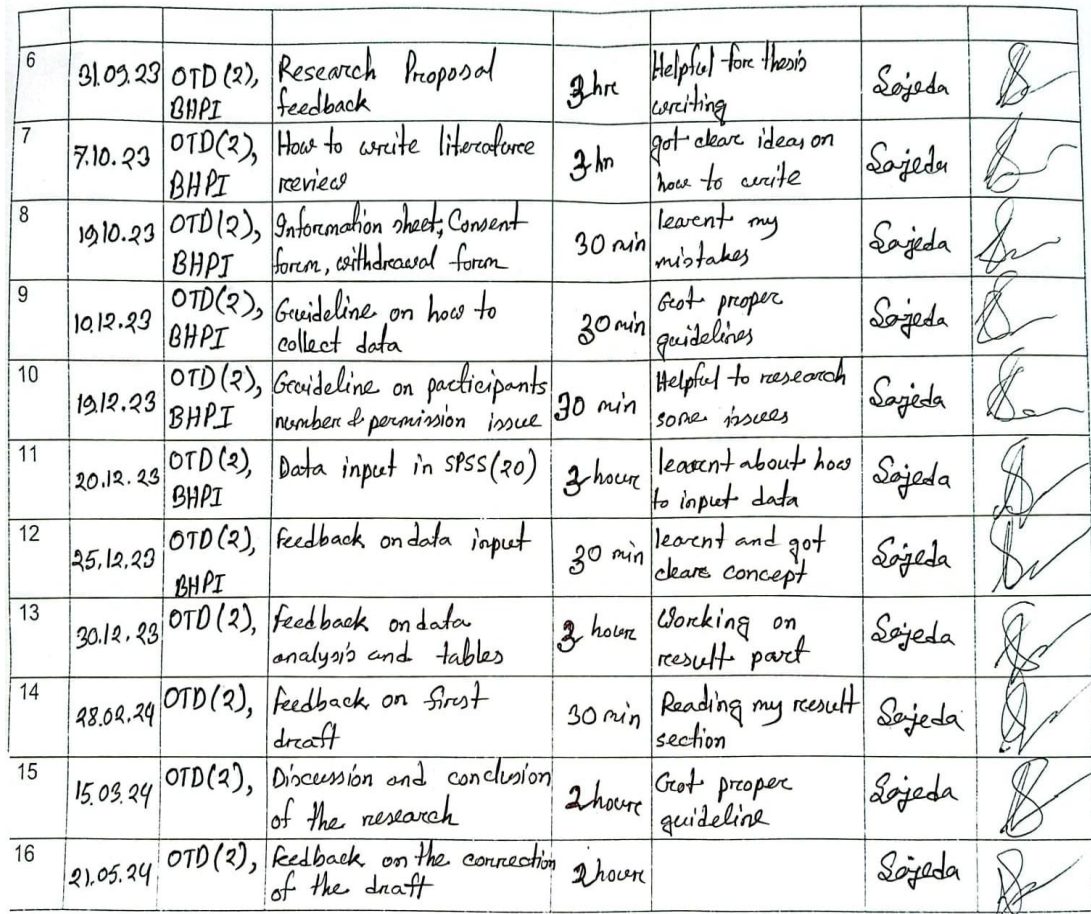 6
31.09.23
OTD(2),
BHPI
Research Proposal
feedback
3 hr
Helpful for thesis
writing
Sajeda
7
7.10.23
OTD(2),
BHPI
How to write literature
review
3 hr
got clear ideas on
how to write
Sajeda
8
19.10.23
OTD(2),
BHPI
Information sheet, Consent
form, withdrawal form
30 min
learnt my
mistakes
Sajeda
9
10.12.23
OTD(2),
BHPI
Guideline on how to
collect data
30 min
Got proper
guidelines
Sajeda
10
19.12.23
OTD(2),
BHPI
Guideline on participants
number & permission issue
30 min
Helpful to research
some issues
Sajeda
11
20.12.23
OTD(2),
BHPI
Data input in SPSS(20)
3 hour
learnt about how
to input data
Sajeda
12
25.12.23
OTD(2),
BHPI
feedback on data input
30 min
learnt and got
clear concept
Sajeda
13
30.12.23
OTD(2),
feedback on data
analysis and tables
3 hour
Working on
result part
Sajeda
14
28.02.24
OTD(2),
feedback on first
draft
30 min
Reading my result
section
Sajeda
15
15.03.24
OTD(2),
Discussion and conclusion
of the research
2 hour
Got proper
guideline
Sajeda
16
21.05.24
OTD(2),
feedback on the correction
of the draft
2 hour
Sajeda